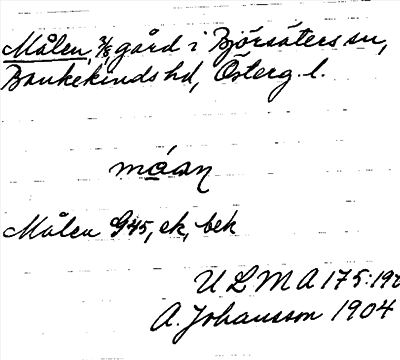 Målen, 3/8 gård i Björsäters sn,
Bankekinds hd, Österg. l.
måan
Målen G45, ek, bek
ULMA 175:
A. Johansson 1904